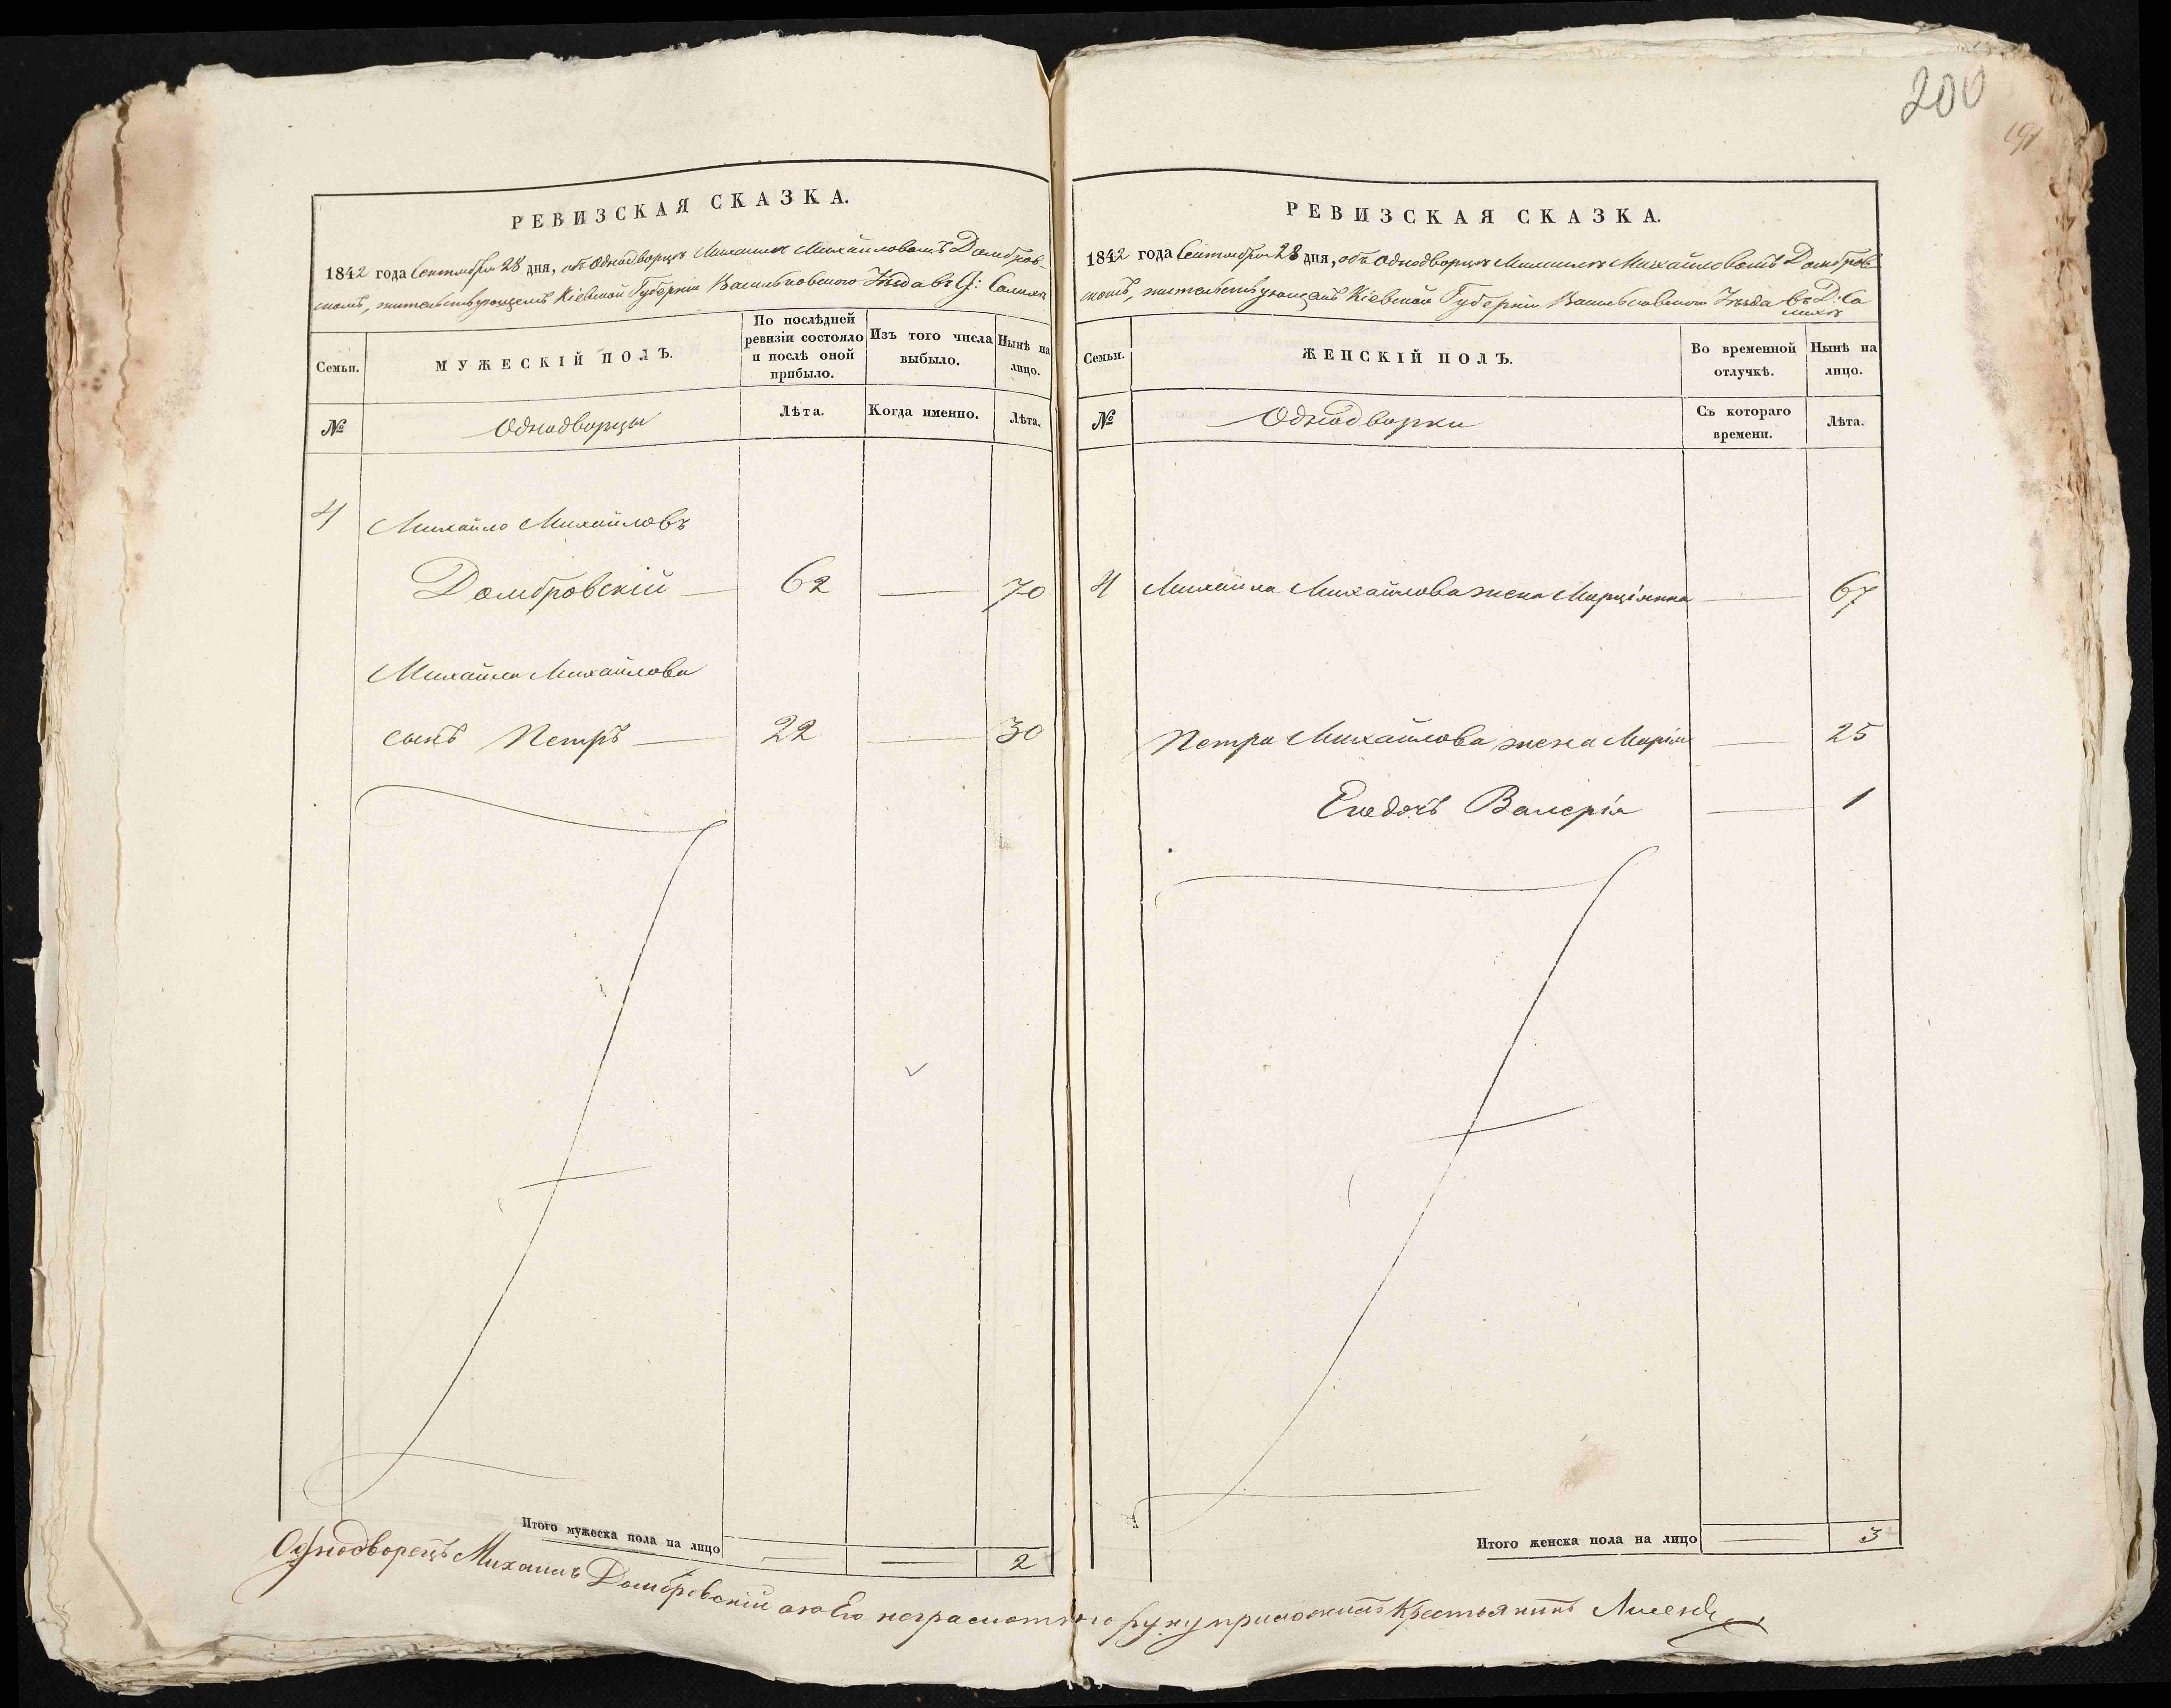 200
191
РЕВИЗСКАЯ СКАЗКА.
1842 года Сентября 28 дня, объ Однодворцѣ Михаилѣ Михайловомъ Домбров-
скомъ, жительствующемъ Кіевской Губерніи Васильковскаго Уѣзда въ
Семьи.
МУЖЕСКІЙ ПОЛЪ.
По послѣдней ревизіи состояло и послѣ оной прибыло.
Изъ того числа выбыло.
Нынѣ на лицо.
№
Однодворцы
Лѣта.
Когда именно.
Лѣта.
4 Михайло Михайловъ
Домбровскій — 62 — 70
Михайла Михайлова
сынъ Петръ — 22 — 30
Итого мужеска пола на лицо — — 2
РЕВИЗСКАЯ СКАЗКА.
1842 года Сентября 28 дня, объ Однодворцѣ Михаилѣ Михайловомъ Домбров
скомъ, жительствующемъ Кіевской Губерніи Васильковскаго Уѣзда въ Д: Са
Семьи.
ЖЕНСКІЙ ПОЛЪ.
Во временной отлучкѣ.
Нынѣ на лицо.
№
Однодворки
Съ котораго времени.
Лѣта.
4 Михайла Михайлова жена Марціянна — 67
Петра Михайлова жена Марія — 25
Его дочь Валерія — 1
Итого женска пола на лицо — 3
Однодворецъ Михаилъ Домбровскій а за Его неграмотнаго руку приложилъ Крестьянинъ